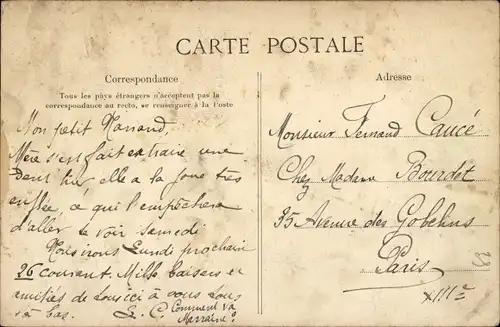 CARTE POSTALE
Correspondance
Tous les pays étrangers n'acceptent pas la
correspondance au recto, se renseigner à la Poste
Mon petit
Mère s'est fait extraire une
Dent hier elle a la joue très
enflée, ce qui l'empêchera
d'aller te voir samedi
Nous irons Lundi prochain
26 courant. Mille baisers et
amitiés de tous ici à vous tous
là bas. L. C. Comment va
Marraine?
Adresse
Monsieur Fernand Caucé
Chez Madame Bourdet
35 Avenue des Gobelins
Paris
XIIIe